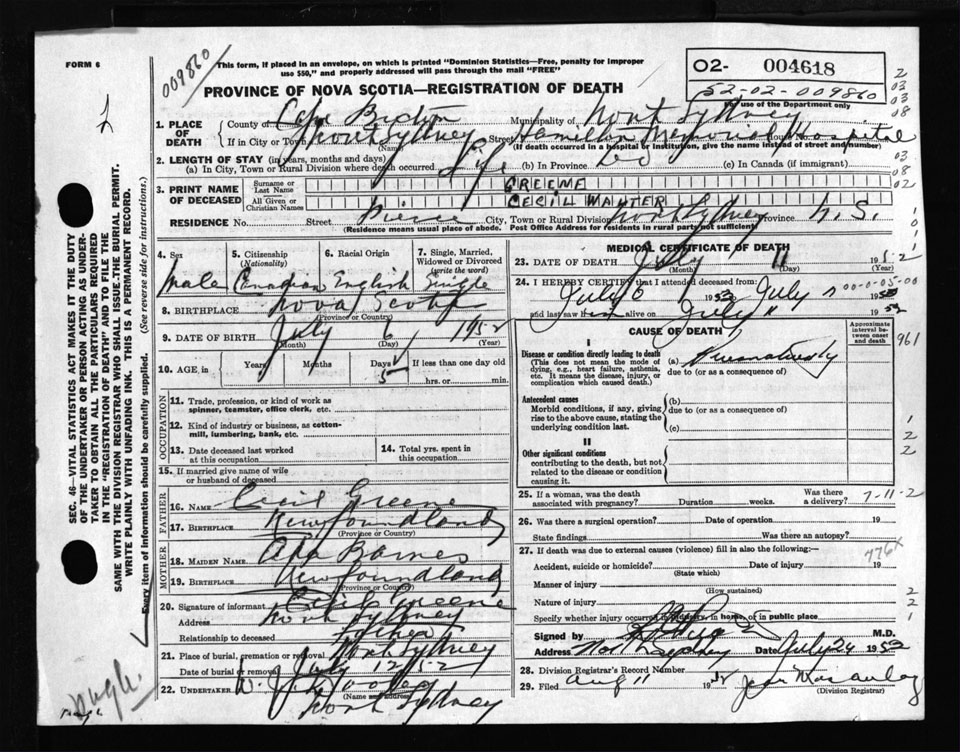 FORM 6
009860
This form, if placed in an envelope, on which is printed "Dominion Statistics—Free, penalty for improper
use $50," and properly addressed will pass through the mail "FREE"
PROVINCE OF NOVA SCOTIA—REGISTRATION OF DEATH
02- 004618
52-02-009860
For use of the Department only
1. PLACE OF DEATH
County of Cape Breton Municipality of North Sydney
If in City or Town North Sydney Street Hamilton Memorial Hospital
(Name) (If death occurred in a hospital or institution, give the name instead of street and number)
2. LENGTH OF STAY (in years, months and days)
(a) In City, Town or Rural Division where death occurred Life (b) In Province do (c) In Canada (if immigrant)
3. PRINT NAME OF DECEASED
Surname or Last Name GREENE
All Given or Christian Names CECIL WALTER
RESIDENCE No. Street Pierce City, Town or Rural Division North Sydney Province N. S.
(Residence means usual place of abode. Post Office Address for residents in rural parts not sufficient)
4. Sex
5. Citizenship (Nationality)
6. Racial Origin
7. Single, Married, Widowed or Divorced (write the word)
Male Canadian English Single
8. BIRTHPLACE Nova Scotia
(Province or Country)
9. DATE OF BIRTH July 6 1952
(Month) (Day) (Year)
10. AGE in Years Months Days If less than one day old
5 hrs. or min.
OCCUPATION
11. Trade, profession, or kind of work as
spinner, teamster, office clerk, etc.
12. Kind of industry or business, as cotton-
mill, lumbering, bank, etc.
13. Date deceased last worked
at this occupation
14. Total yrs. spent
in this occupation
15. If married give name of wife
or husband of deceased
FATHER
16. NAME Cecil Greene
17. BIRTHPLACE Newfoundland
(Province or Country)
MOTHER
18. MAIDEN NAME Ada Barnes
19. BIRTHPLACE Newfoundland
(Province or Country)
20. Signature of informant Cecil Greene
Address North Sydney
Relationship to deceased Father
21. Place of burial, cremation or removal North Sydney
Date of burial or removal July 12 1952
22. UNDERTAKER
(Name and address)
North Sydney
MEDICAL CERTIFICATE OF DEATH
23. DATE OF DEATH July 11 1952
(Month) (Day) (Year)
24. I HEREBY CERTIFY that I attended deceased from:
July 6 1952 July
00-0-05-00
and last saw him alive on July 11 1952
CAUSE OF DEATH
Approximate interval between onset and death
I
Disease or condition directly leading to death
(This does not mean the mode of
dying, e.g., heart failure, asthenia,
etc. It means the disease, injury, or
complication which caused death.)
(a) Prematurity
due to (or as a consequence of)
Antecedent causes
Morbid conditions, if any, giving
rise to the above cause, stating the
underlying condition last.
(b)
due to (or as a consequence of)
(c)
II
Other significant conditions
contributing to the death, but not
related to the disease or condition
causing it.
25. If a woman, was the death
associated with pregnancy? Duration weeks. Was there
a delivery?
7-11-2
26. Was there a surgical operation? Date of operation 19
State findings Was there an autopsy?
27. If death was due to external causes (violence) fill in also the following:—
776X
Accident, suicide or homicide? Date of injury 19
(State which)
Manner of injury
(How sustained)
Nature of injury
Specify whether injury occurred in industry, in home, or in public place
Signed by M.D.
Address North Sydney Date July 24 1952
28. Division Registrar's Record Number
29. Filed Aug 11 19
(Division Registrar)
SEC. 46—VITAL STATISTICS ACT MAKES IT THE DUTY
OF THE UNDERTAKER OR PERSON ACTING AS UNDER-
TAKER TO OBTAIN ALL THE PARTICULARS REQUIRED
IN THE "REGISTRATION OF DEATH" AND TO FILE THE
SAME WITH THE DIVISION REGISTRAR WHO SHALL ISSUE THE BURIAL PERMIT.
WRITE PLAINLY WITH UNFADING INK. THIS IS A PERMANENT RECORD.
Every item of information should be carefully supplied. (See reverse side for instructions.)